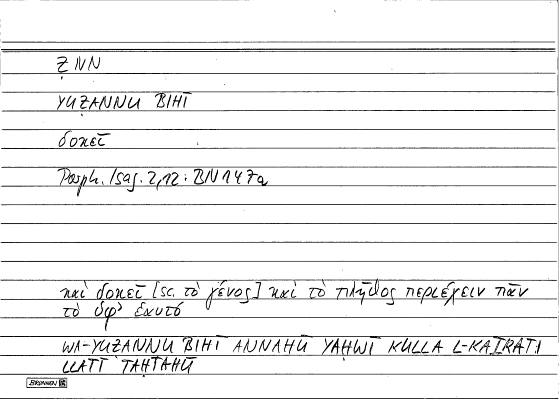 ẒNN
YUẒANNU BIHĪ
δοκεῖ
Porph. Isag. 2,12: BN 147a
καὶ δοκεῖ [sc. τὸ γένος] καὶ τὸ πλῆθος περιέχειν πᾶν
τὸ ὑφ' ἑαυτό
WA-YUẒANNU BIHĪ ANNAHŪ YAḤWĪ KULLA L-KAṮRATI
LLATĪ TAḤTAHŪ
BRUNNEN